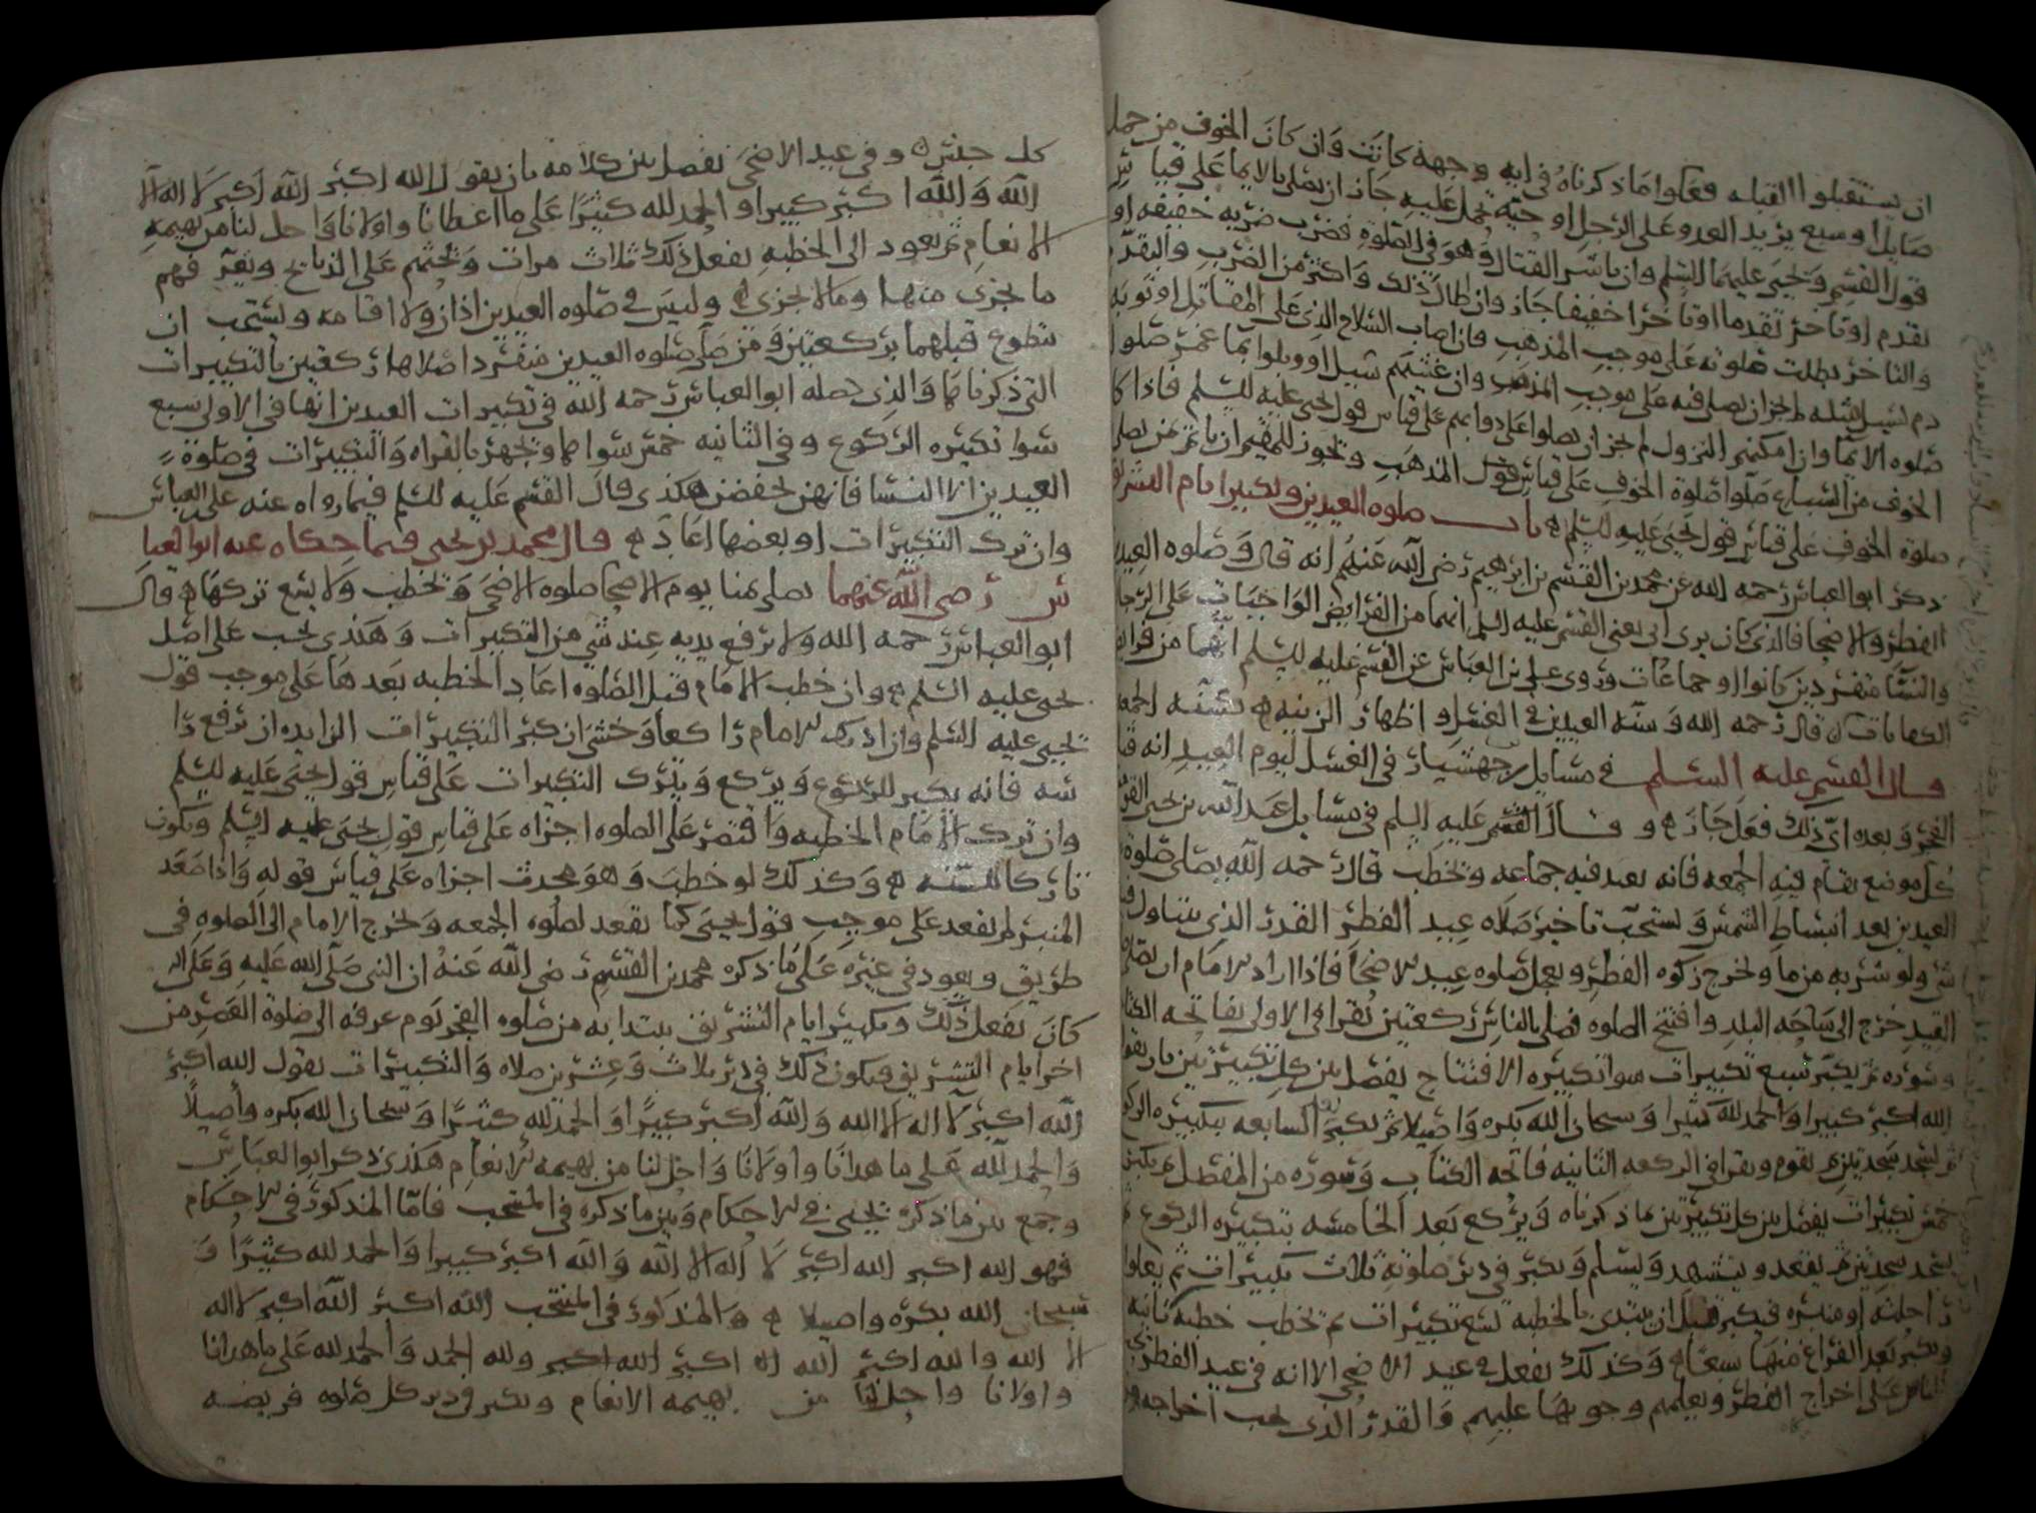 ان يستقبلوا القبله فعلوا ما ذكرناه في ايه وجهة كانت وان كان الخوف من جمل
صايل او سبع يريد العدو على الرجل او حية تحمل عليه جاز ان يصلي بالايما على قياس
قول القسم ويحيى عليهما السلم وان باشر القتال وهو في الصلوة فضرب ضربه خفيفه او
تقدم او تاخر تقدما او تاخرا خفيفا جاز وان طال ذلك واكثر من الضرب والتقدم
والتاخر بطلت صلوته على موجب المذهب فان اصاب السلاح الذي على المقاتل او ثوبه
دم لم يجز ان يصلي فيه على موجب المذهب وان غشيهم سيل
صلوه الايما وان امكنهم النزول لم يجز ان يصلوا على دوابهم على قياس قول يحيى عليه السلم فاذا كا
الخوف من السباع صلوا صلوة الخوف على قياس قول المذهب ويجوز للمقيم ان
صلوة الخوف على قياس قول يحيى عليه السلم باب صلوه العيدين وتكبير ايام التشريق
ذكر ابو العباس رحمه الله عن محمد بن القسم بن ابرهيم رضي الله عنهم انه قال وصلوه العيد
الفطر والاضحا قال كان يرى ابي يعني القسم عليه السلم انهما من الفرايض الواجبات على الرجا
والنسا منفردين كانوا او جماعات وروى علي بن العباس عن القسم عليه السلم انهما من فرايض
الكفايات قال رحمه الله وسنه العيدين في الغسل واظهار الزينه كسنه الجمعه
قال القسم عليه السلم في مسايل بن جهشيار في الغسل ليوم العيد انه
الفجر وبعده اي ذلك فعل جاز وقال القسم عليه السلم في مسايل عبد الله بن يحيى
كل موضع يقام فيه الجمعه فانه يعيد فيه جماعه ويخطب قال رحمه الله يصلي صلوة
العيدين بعد انبساط الشمس ويستحب تاخير صلاه عيد الفطر القدر الذي يتناول فيه
شي ولو شربه من ما ويخرج زكوه الفطر ويعجل صلوه عيد الاضحا فاذا اراد الامام ان يصلي
العيد خرج الى ساحه البلد وافتتح الصلوه فصلى بالناس ركعتين يقرا في الاولى بفاتحه الكتا
وسوره ثم يكبر سبع تكبيرات سوا تكبيره الافتتاح يفصل بين كل تكبيرتين بان يقو
الله اكبر كبيرا والحمد لله كثيرا وسبحان الله بكره واصيلا ثم يكبر بعد السابعه تكبيره الركو
ثم يسجد سجدتين ثم يقوم ويقرا في الركعه الثانيه فاتحه الكتاب وسوره من المفصل ثم يكبر
خمس تكبيرات يفصل بين كل تكبيرتين بما ذكرناه ويركع بعد الخامسه بتكبيره الركوع ثم
يسجد سجدتين ثم يقعد ويتشهد ويسلم ويكبر في دبر صلوته ثلاث تكبيرات ثم يعلوا
راحلته او منبره فيكبر قبل ان يبتدى بالخطبه تسع تكبيرات ثم يخطب خطبه ثانيه
ويكبر بعد الفراغ منها سبعا وكذلك يفعل في عيد الاضحى الا انه في عيد الفطر
الناس على اخراج الفطر ويعلمهم وجوبها عليهم والقدر الذي يجب اخراجه من
كل جنس وفي عيد الاضحى يفصل بين كلامه بان يقول الله اكبر الله اكبر لا اله الا
الله والله اكبر كبيرا والحمد لله كثيرا على ما اعطانا واولانا واحل لنا من بهيمه
الانعام ثم يعود الى الخطبه يفعل ذلك ثلاث مرات ويحثهم على الذبايح ويعرفهم
ما يجزي منها وما لا يجزي وليس في صلوه العيدين اذان ولا اقامه ويستحب ان
يتطوع قبلهما بركعتين ومن صلى صلوه العيدين منفردا صلاها ركعتين بالتكبيرات
التي ذكرناها والذي حصله ابو العباس رحمه الله في تكبيرات العيدين انها في الاولى سبع
سوا تكبيره الركوع وفي الثانيه خمس سواها ويجهر بالقراه والتكبيرات في صلوة
العيدين الا النسا فانهن يخفضن هكذى قال القسم عليه السلم فيما رواه عنه علي بن العباس
وان ترك التكبيرات او بعضها اعاد قال محمد بن يحيى فيما حكاه عنه ابو العبا
س رضي الله عنهما يصلى بمنا يوم الاضحا صلوه الاضحى ويخطب ولا يسع تركها قال
ابو العباس رحمه الله ولا يرفع يديه عند شي من التكبيرات وهكذى يجب على اصل
يحيى عليه السلم وان خطب الامام قبل الصلوه اعاد الخطبه بعدها على موجب قول
يحيى عليه السلم وان ادرك الامام راكعا وخشي ان كبر التكبيرات الزايده ان يرفع را
سه فانه يكبر للركوع ويركع ويترك التكبيرات على قياس قول يحيى عليه السلم
وان ترك الامام الخطبه واقتصر على الصلوه اجزاه على قياس قول يحيى عليه السلم ويكون
تاركا للسنه وكذلك لو خطب وهو محدث اجزاه على قياس قوله واذا صعد
المنبر لم يقعد على موجب قول يحيى كما يقعد لصلوه الجمعه ويخرج الامام الى الصلوه في
طريق ويعود في غيره على ما ذكره محمد بن القسم رضي الله عنه ان النبي صلى الله عليه وعلى اله
كان يفعل ذلك وتكبير ايام التشريق يبتدا به من صلوه الفجر يوم عرفه الى صلوة العصر من
اخر ايام التشريق فيكون ذلك في دبر ثلاث وعشرين صلاه والتكبيرات يقول الله اكبر
الله اكبر لا اله الا الله والله اكبر كبيرا والحمد لله كثيرا وسبحان الله بكره واصيلا
والحمد لله على ما هدانا واولانا واحل لنا من بهيمه الانعام هكذى ذكر ابو العباس
وجمع بين ما ذكره يحيى في الاحكام وبين ما ذكره في المنتخب فاما المذكور في الاحكام
فهو الله اكبر الله اكبر لا اله الا الله والله اكبر كبيرا والحمد لله كثيرا و
سبحان الله بكره واصيلا والمذكور في المنتخب الله اكبر الله اكبر لا اله
الا الله والله اكبر الله اكبر الله اكبر ولله الحمد والحمد لله على ما هدانا
واولانا واحل لنا من بهيمه الانعام ويكبر في دبر كل صلوه فريضه